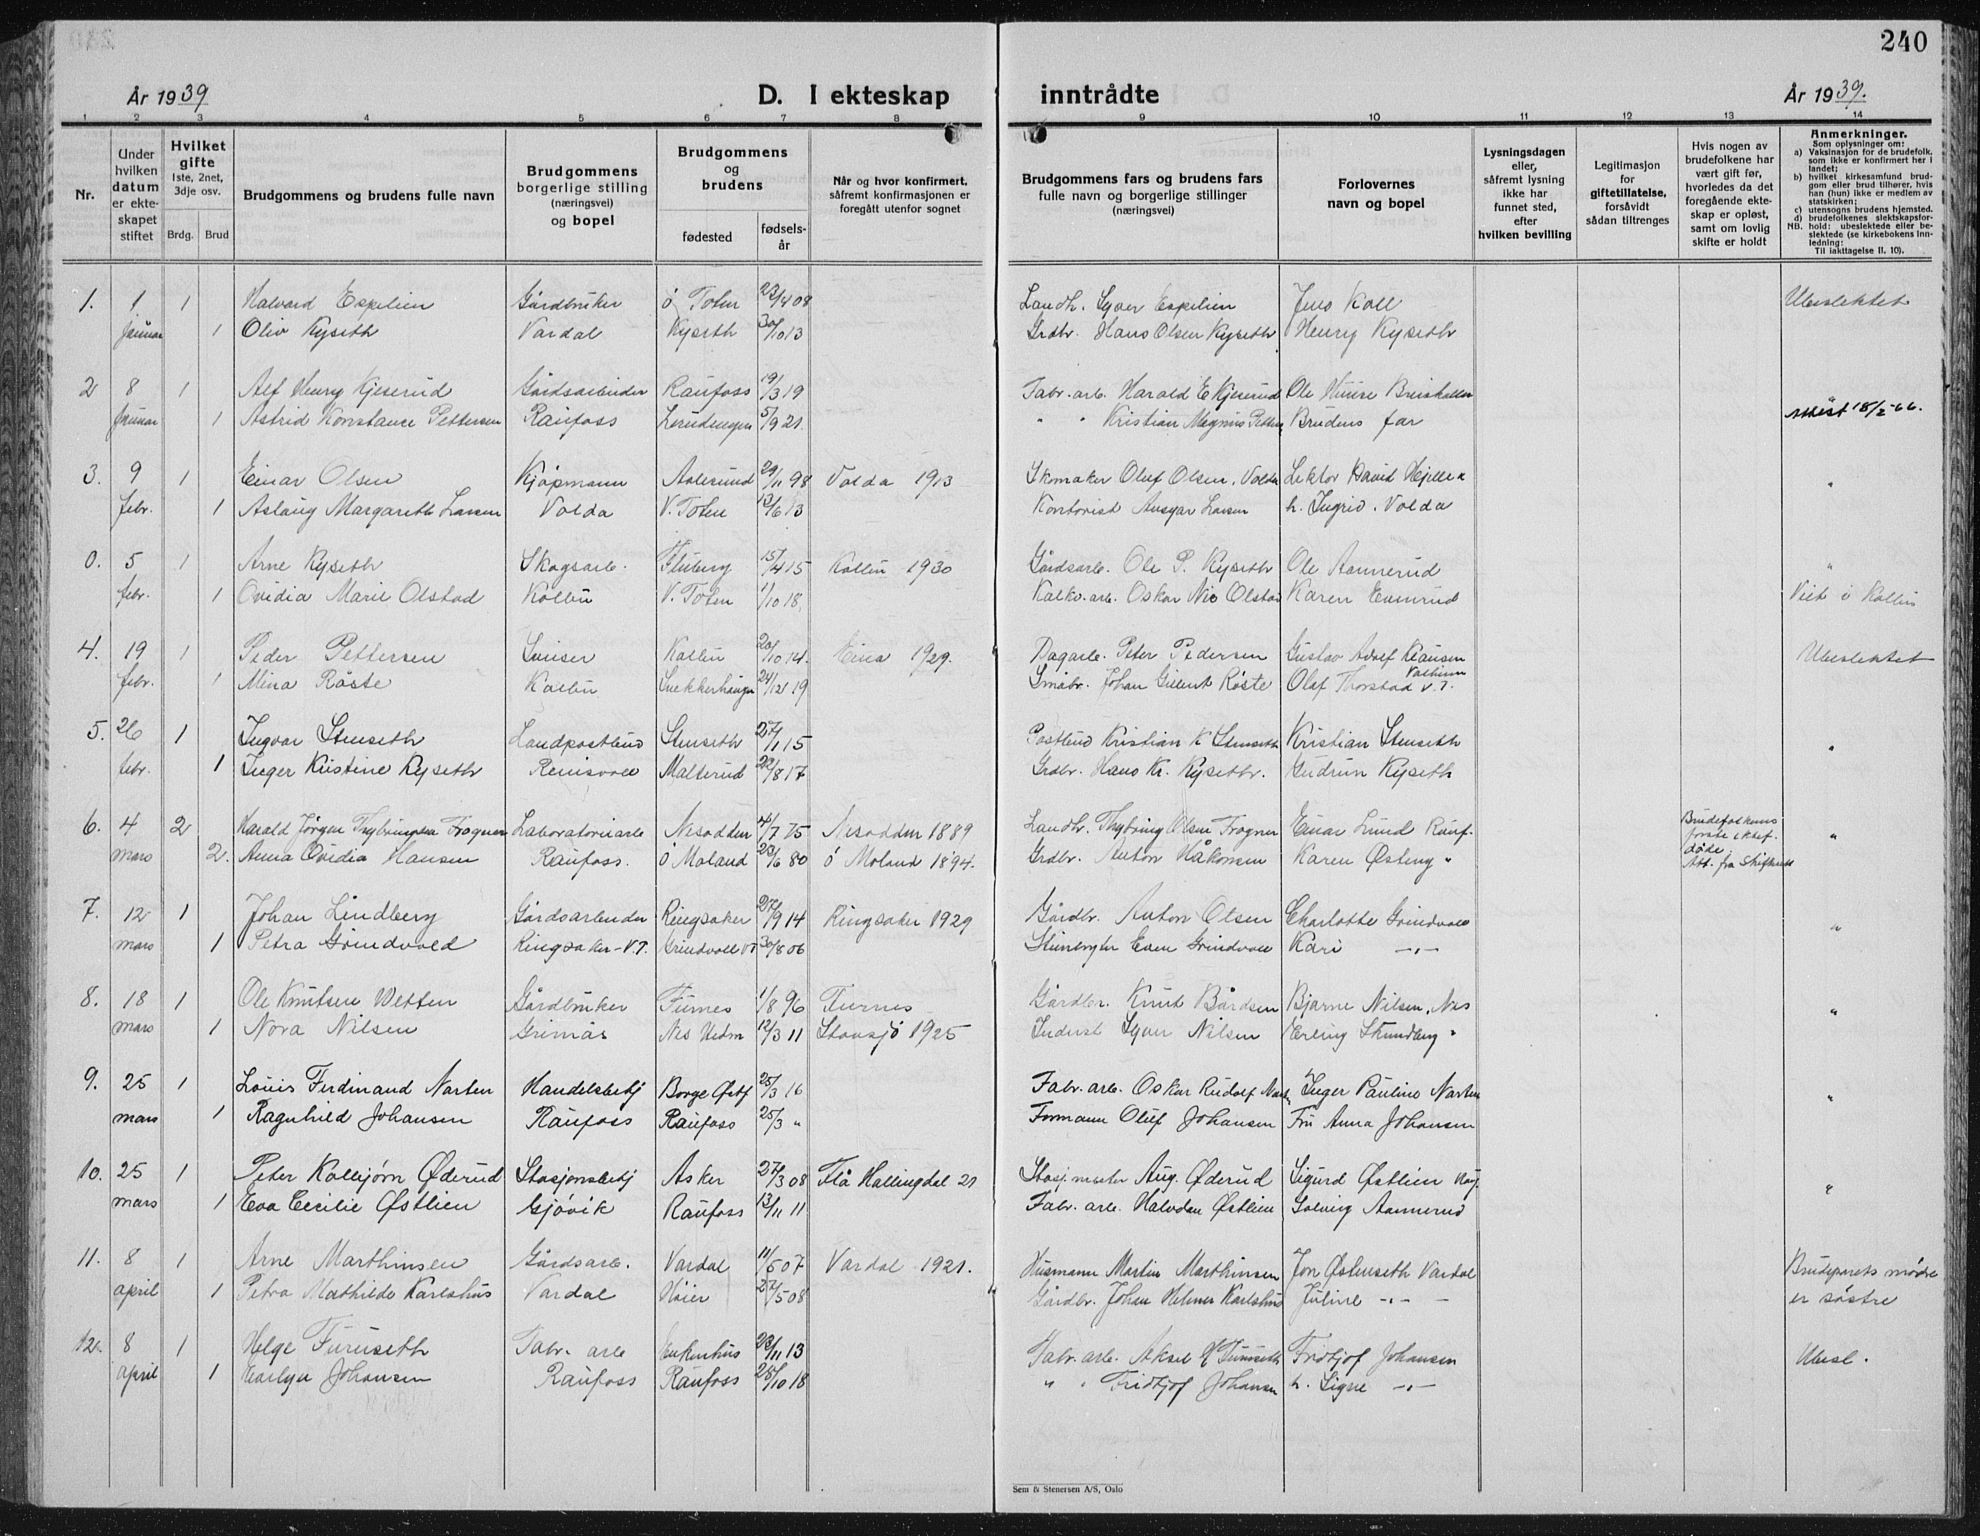 240
År 1939
D. I ekteskap inntrådte
År 1939.
1 2 3 4 5 6 7 8 9 10 11 12 13 14
Nr.
Under hvilken datum er ekteskapet stiftet
Hvilket gifte 1ste, 2net, 3dje osv.
Brdg. Brud
Brudgommens og brudens fulle navn
Brudgommens borgerlige stilling (næringsvei) og bopel
Brudgommens og brudens
fødested
fødselsår
Når og hvor konfirmert, såfremt konfirmasjonen er foregått utenfor sognet
Brudgommens fars og brudens fars fulle navn og borgerlige stillinger (næringsvei)
Forlovernes navn og bopel
Lysningsdagen eller, såfremt lysning ikke har funnet sted, efter hvilken bevilling
Legitimasjon for giftetillatelse, forsåvidt sådan tiltrenges
Hvis nogen av brudefolkene har vært gift før, hvorledes da det foregående ekteskap er opløst, samt om lovlig skifte er holdt
Anmerkninger.
Som oplysninger om:
a) Vaksinasjon for de brudefolk, som ikke er konfirmert her i landet;
b) hvilket kirkesamfund brudgom eller brud tilhører, hvis han (hun) ikke er medlem av statskirken;
c) utensogns brudens hjemsted.
d) brudefolkenes slektskapsforhold: ubeslektede eller beslektede (se kirkebokens innledning:
NB.
Til iakttagelse II. 10).
1. 1 1 Halvard Espelien Gårdbruker Ö Toten 23/4 08 Landh. Syver Espelien Jens Koll Ubeslektet
januar 1 Oliv Kyseth Vardal Kyseth 30/10 13 Grdbr. Hans Olsen Kyseth Henry Kyseth
2 8 1 Alf Henry Kjeserud Gårdsarbeider Raufoss 19/3 19 Fabr. arb. Harald E Kjeserud Ole
Januar 1 Astrid Konstance Pettersen Raufoss 5/9 21. " " Kristian Magnus Brudens far 18/2-66.
3. 9 1 Einar Olsen Kjøpmann Aalesund 29/11 98 Volda 1913 Skomaker Oluf Olsen, Volda Lektor David "
febr. 1 Aslaug Margareth Larsen Volda V. Toten 13/6 13 Kontorist Ansgar Larsen h. Ingrid. Volda
0. 5 1 Arne Kyseth Skogsarb. Fluberg 15/4 15 Kolbu 1930 Gårdsarb. Ole P. Kyseth Ole Aannerud "
febr. 1 Ovidia Marie Olstad Kolbu V. Toten 1/10 18. Kalkv. arb. Oskar Nic Olstad Karen Viet i Kolbu
4. 19 1 Peder Pettersen Kolbu 20/10 14. Eina 1929. Dagarb. Peter Pedersen Gustav Adolf Klausen Ubeslektet
febr. 1 Mina Røste Kolbu 24/12 19 Småbr. Johan Gilbert Røste Olaf Thorstad V.T.
5. 26 1 Ingvar Stenseth Landpostbud Stenseth 27/1 15 Postbud Kristian K Stenseth Kristian Stenseth "
febr. 1 Inger Kristine Kyseth Reinsvoll Malterud 22/8 17 Grdbr. Hans Kr. Kyseth. Gudrun Kyseth
6. 4 2 Harald Jörgen Frogner Laboratoriearb Nesodden 4/7 75 Nesodden 1889 Landh. Olsen Frogner Einar Lund Rauf. Brudefolkenes første ektef. døde "
mars 2. Anna Ovidia Hansen Raufoss. Ö Moland 23/6 80 Ö Moland 1894. Grdbr. Anton Håkonsen Karen Østeng " Att. fra Skifterett
7. 12 1 Johan Lindberg Gårdsarbeider Ringsaker 27/9 14 Ringsaker 1929 Gårdbr. Anton Olsen Charlotte Grindvold "
mars 1 Petra Grindvold Ringsaker - V.T. Grindvoll VT 30/8 06 Even Grindvold Kari -"-
8. 18 1 Ole Knutsen Wetten Gårdbruker Furnes 1/8 96 Furnes Gårdbr. Knut Bårdsen Bjarne Nilsen, Nes "
mars 1 Nora Nilsen Nes Hedm 12/3 11 Stavsjø 1925 Inderst Syver Nilsen Erling "
9. 25 1 Louis Ferdinand Narten Handelsbetj Borge Østf 25/3 16 Fabr. arb. Oskar Rudolf Inger Pauline Narten "
mars 1 Ragnhild Johansen Raufoss Raufoss 25/3 " Formann Oluf Johansen Fru Anna Johansen
10. 25 1 Peter Kolbjørn Øderud Stasjonsbetj Asker 27/3 08 Flå Hallingdal 21 Stasj. mester Aug. Øderud Sigurd Østlien "
mars 1 Eva Cecilie Østlien Gjøvik Raufoss 13/11 11 Fabr. arb. Halvdan Østlien Solveig Aannerud
11. 8 1 Arne Marthinsen Gårdsarb. Vardal 11/5 07 Vardal 1921. Husmann Martin Marthinsen Jon Østenseth Vardal Brudeparets mødre
april 1 Petra Mathilde Karlshus Vardal 27/5 08 Gårdbr. Johan Helmer Karlshus Juline -"- er søstre
12. 8 1 Helge Furuseth Fabr. arb 23/11 13 Fabr. arb. Aksel Furuseth Fridtjof Johansen Ubesl.
april 1 Johansen Raufoss Raufoss 28/10 18 " " Fridtjof Johansen h. Signe -"-
Sem & Stenersen A/S, Oslo